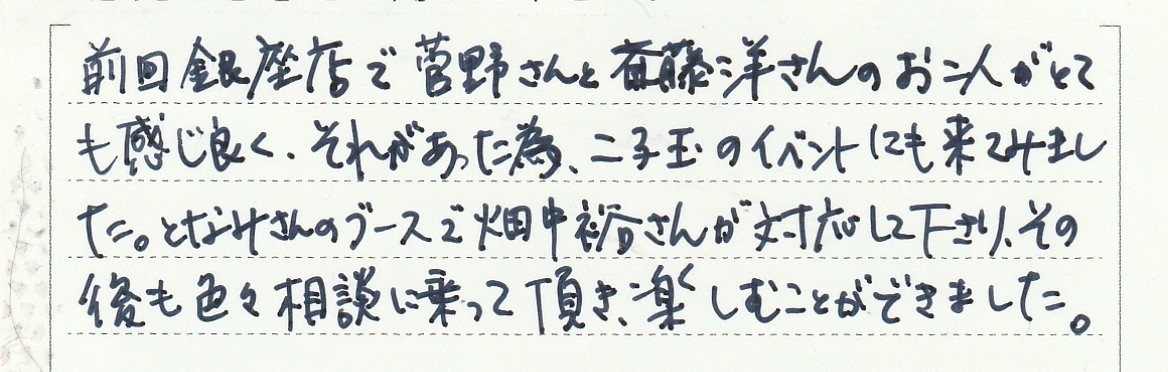 前回銀座店で菅野さんと斎藤洋さんのお二人がとて
も感じ良く、それがあった為、二子玉のイベントにも来てみまし
た。となみさんのブースで畑中裕さんが対応して下さり、その
後も色々相談に乗って頂き、楽しむことができました。